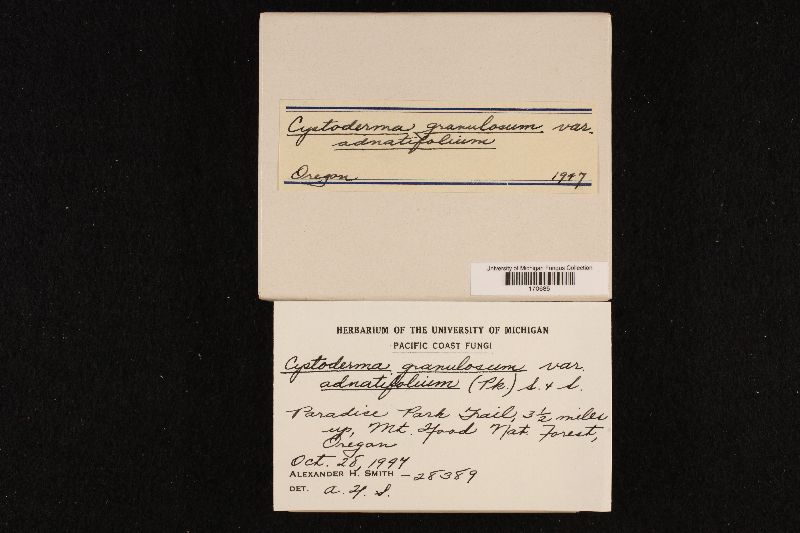 Cystoderma granulosum var.
adnatifolium
Oregon 1947
University of Michigan Fungus Collection
170685
HERBARIUM OF THE UNIVERSITY OF MICHIGAN
PACIFIC COAST FUNGI
Cystoderma granulosum var.
adnatifolium (Pk.) S. & S.
Paradise Park Trail, 3 1/2 miles
up, Mt. Hood Nat. Forest,
Oregon
Oct. 28, 1947
ALEXANDER H. SMITH - 28389
DET. A. H. S.